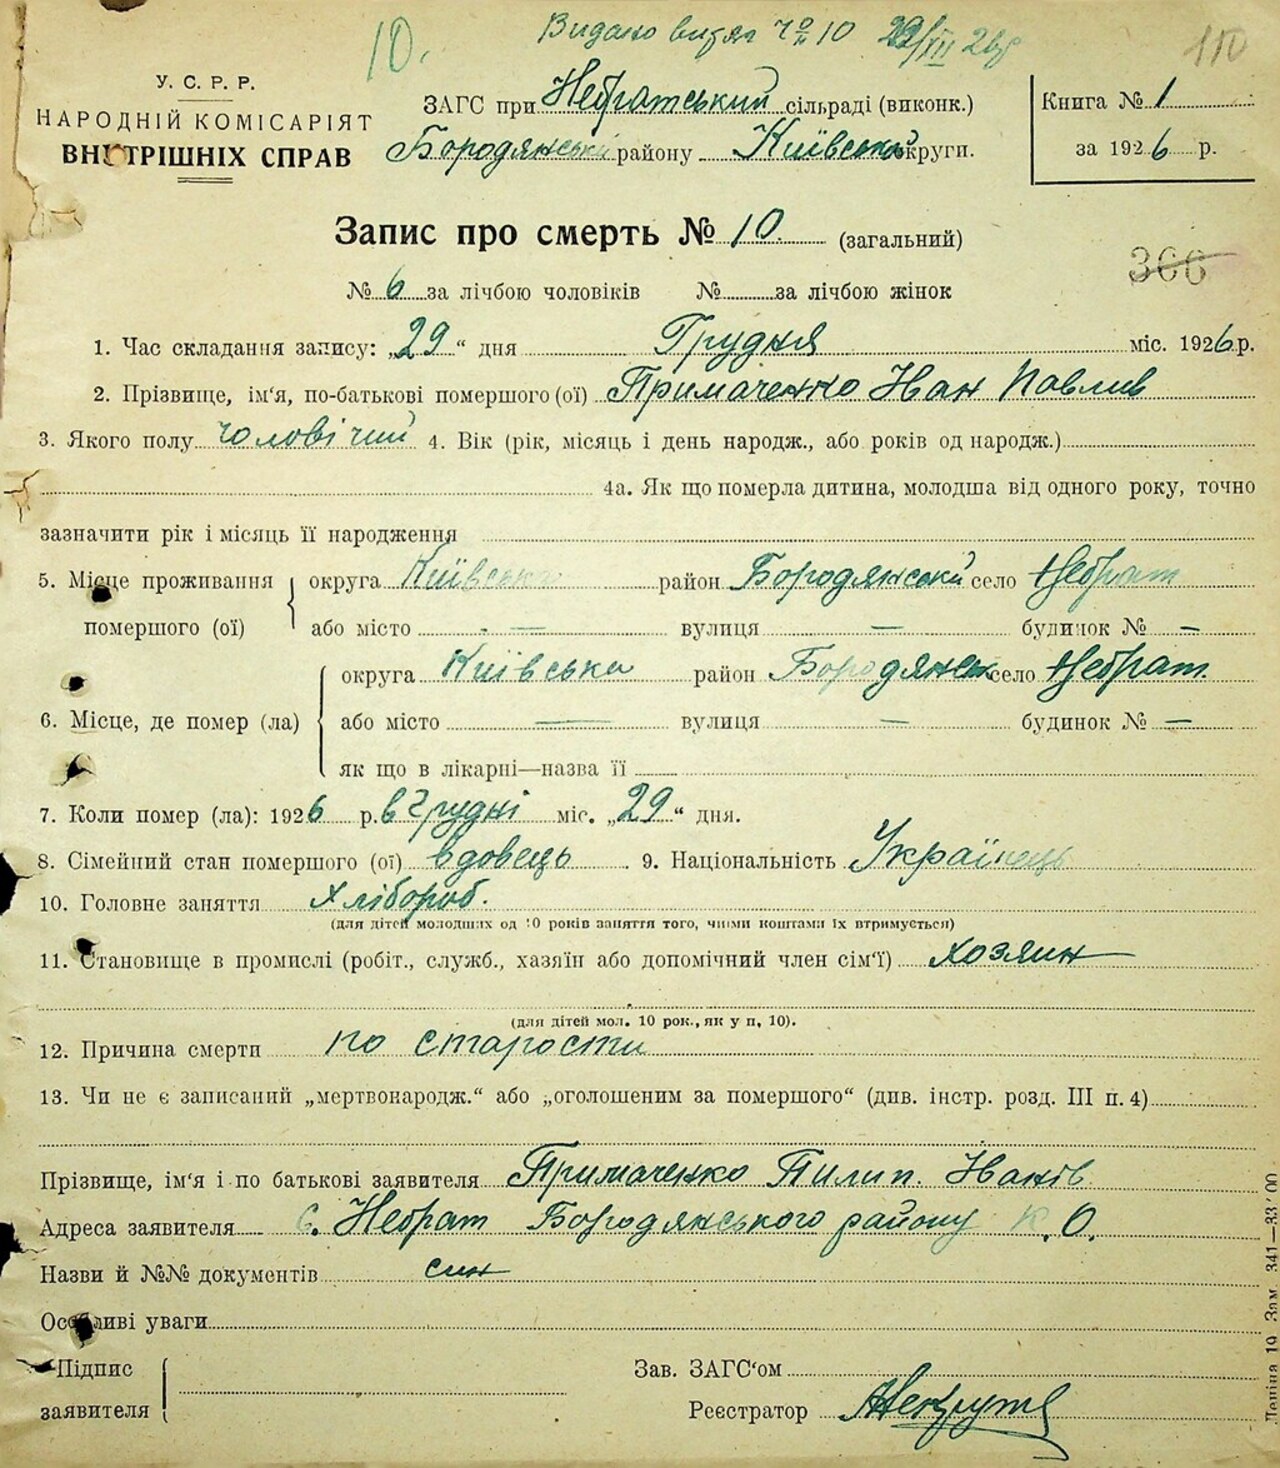 10.
Видано витяг № 10 29/XII 26р
110
У. С. Р. Р.
НАРОДНІЙ КОМІСАРІЯТ
ВНУТРІШНІХ СПРАВ
ЗАГС при Небратський сільраді (виконк.)
Бородянський району Київська округи.
Книга № 1
за 1926 р.
Запис про смерть № 10. (загальний)
366
№ 6 за лічбою чоловіків № за лічбою жінок
1. Час складання запису: „29“ дня Грудня міс. 1926 р.
2. Прізвище, ім'я, по-батькові помершого (ої) Примаченко Іван Павлив
3. Якого полу чоловічий 4. Вік (рік, місяць і день народж., або років од народж.)
4а. Як що померла дитина, молодша від одного року, точно
зазначити рік і місяць її народження
5. Місце проживання помершого (ої)
округа Київська район Бородянський село Небрат
або місто — вулиця — будинок № —
6. Місце, де помер (ла)
округа Київська район Бородянськ село Небрат.
або місто — вулиця — будинок № —
як що в лікарні—назва її
7. Коли помер (ла): 1926 р. в Грудні міс. „29“ дня.
8. Сімейний стан помершого (ої) вдовець 9. Національність Українець
10. Головне заняття Хлібороб.
(для дітей молодших од 10 років заняття того, чиїми коштами їх втримується)
11. Становище в промислі (робіт., служб., хазяїн або допомічний член сім'ї) хозяин
(для дітей мол. 10 рок., як у п, 10).
12. Причина смерти по старости
13. Чи не є записаний „мертвонародж.“ або „оголошеним за помершого“ (див. інстр. розд. III п. 4)
Прізвище, ім'я і по батькові заявителя Примаченко Пилип. Іванів
Адреса заявителя с. Небрат Бородянського району К. О.
Назви й №№ документів син
Особливі уваги
Підпис заявителя
Зав. ЗАГС'ом
Реєстратор
Зам. 341—33/00